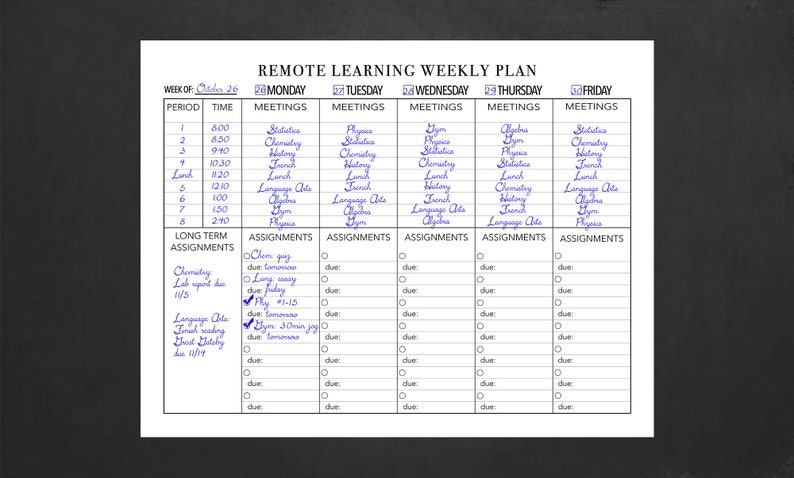 REMOTE LEARNING WEEKLY PLAN
WEEK OF: October 26 26 MONDAY 27 TUESDAY 28 WEDNESDAY 29 THURSDAY 30 FRIDAY
PERIOD TIME MEETINGS MEETINGS MEETINGS MEETINGS MEETINGS
1 8:00 Statistics Physics Gym Algebra Statistics
2 8:50 Chemistry Statistics Physics Gym Chemistry
3 9:40 History Chemistry Statistics Physics History
4 10:30 French History Chemistry Statistics French
Lunch 11:20 Lunch Lunch Lunch Lunch Lunch
5 12:10 Language Arts French History Chemistry Language Arts
6 1:00 Algebra Language Arts French History Algebra
7 1:50 Gym Algebra Language Arts French Gym
8 2:40 Physics Gym Algebra Language Arts Physics
LONG TERM
ASSIGNMENTS
Chemistry:
Lab report due
11/5
Language Arts:
Finish reading
Great Gatsby
due 11/14
ASSIGNMENTS ASSIGNMENTS ASSIGNMENTS ASSIGNMENTS ASSIGNMENTS
Chem: quiz
due: tomorrow due: due: due: due:
Lang: essay
due: friday due: due: due: due:
Phy #1-15
due: tomorrow due: due: due: due:
Gym: 30min jog
due: tomorrow due: due: due: due:
due: due: due: due: due:
due: due: due: due: due:
due: due: due: due: due: